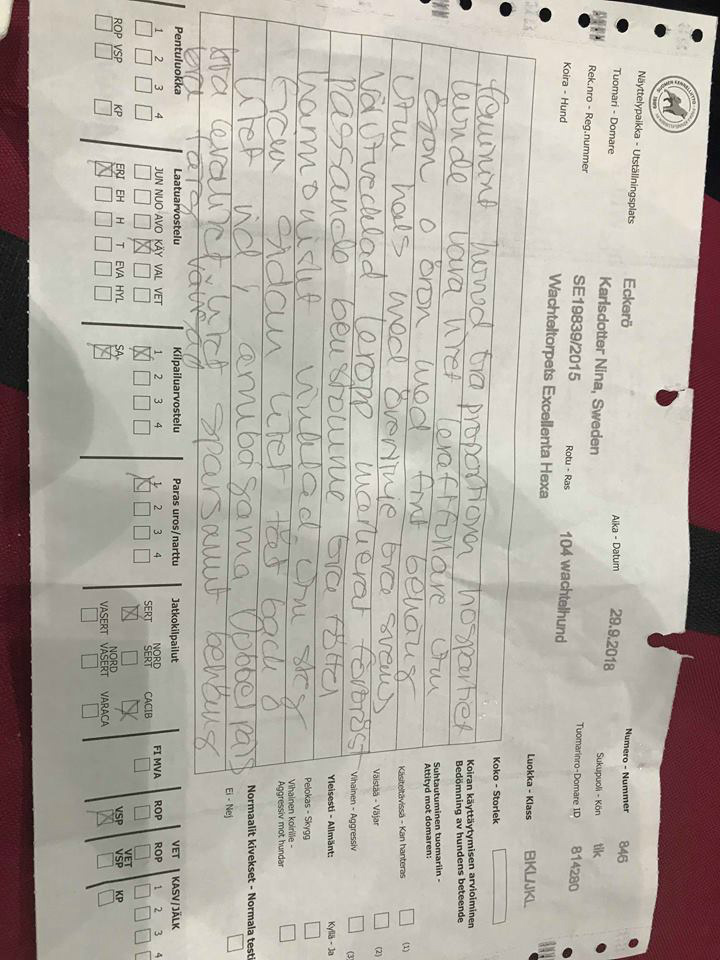 SUOMEN KENNELLIITTO
1889
Näyttelypaikka - Utställningsplats
Eckerö
Aika - Datum
29.9.2018
Numero - Nummer
846
Tuomari - Domare
Karlsdotter Nina, Sweden
Sukupuoli - Kön
tik
Rek.nro - Reg.nummer
SE19839/2015
Rotu - Ras
104 wachtelhund
Tuomarinro-Domare ID
814280
Koira - Hund
Wachteltorpets Excellenta Hexa
Luokka - Klass
BKL/JKL
Koko - Storlek
Koiran käyttäytymisen arvioiminen
Bedömning av hundens beteende
Suhtautuminen tuomariin -
Attityd mot domaren:
Käsiteltävissä - Kan hanteras
(1)
Väistää - Väjar
(2)
Vihainen - Aggressiv
(3)
Yleisesti - Allmänt:
Kyllä - Ja
Pelokas - Skygg
Vihainen koirille -
Aggressiv mot hundar
Normaalit kivekset - Normala testi
Ei - Nej
feminint huvud bra proportion nospartiet
kunde vara litet kraftfullare fin
ögon o öron med fint behäng
fin hals med överlinje bra svans
välutvecklad kropp markerat förbröst
passande benstomme bra tassar
harmoniskt vinklad. fin steg
fram sidan litet tät bach
litet vid i armbågarna
bra karaktär litet sparsamt behäng
bra färg
Pentuluokka
1 2 3 4
ROP VSP KP
Laatuarvostelu
JUN NUO AVO KÄY VAL VET
ERI EH H T EVA HYL
Kilpailuarvostelu
1 2 3 4
SA
Paras uros/narttu
1 2 3 4
Jatkokilpailut
SERT NORD SERT CACIB
VASERT NORD VASERT VARACA
FI MVA
ROP
VSP
VET
ROP
VET VSP
KASV/JÄLK
1 2 3 4
KP